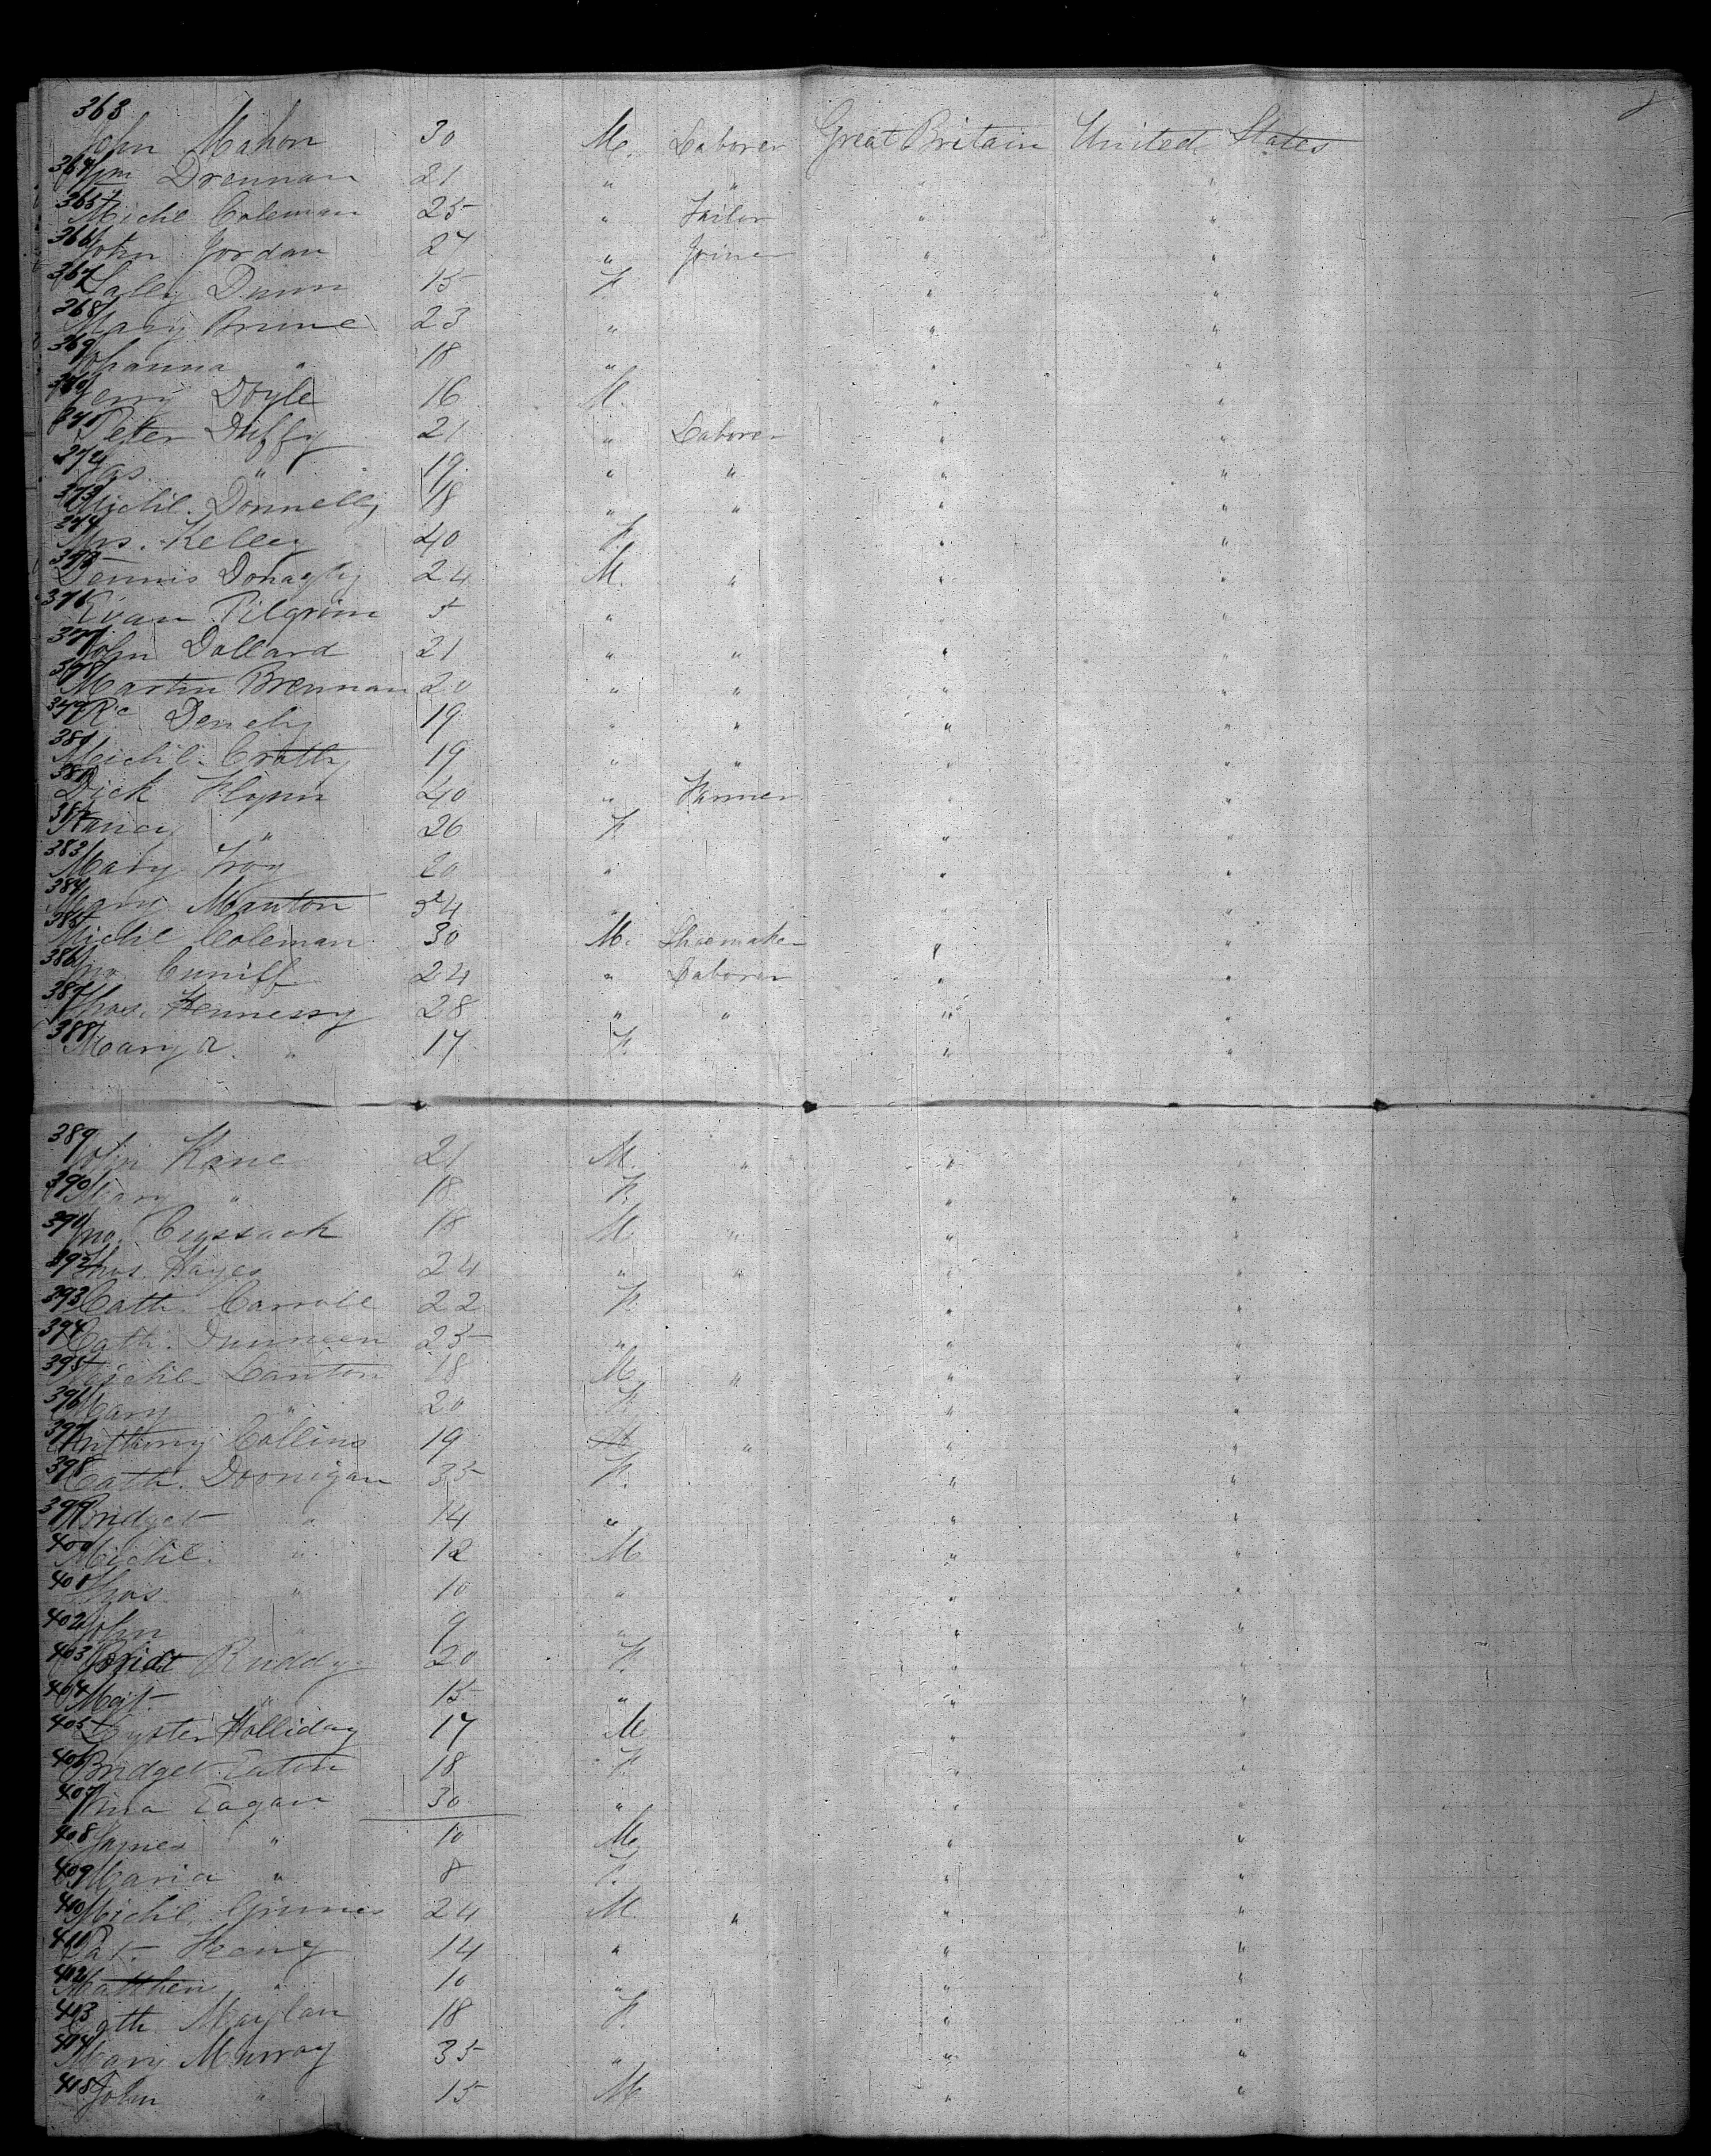 363 John Mahon 30 M. Laborer Great Britain United States
364 Wm Drennan 21 " " " "
365 Michl Coleman 25 " Tailor " "
366 John Jordan 27 " Joiner " "
367 Dunn 15 F. " "
368 Mary Brune 23 " " "
369 Johanna " 18 " " "
370 Jerry Doyle 16 M. " "
371 Peter Duffy 21 " Laborer " "
Jas. " 19 " " " "
373 Michl. Donnelly 18 " " " "
374 Mrs. Kelley 40 F. " "
375 Dennis Donaghy 24 M. " " "
376 Evan Pilgrim 5 " " "
377 John Dollard 21 " " " "
378 Martin Brennan 20 " " " "
379 Rc Denehy 19 " " " "
380 Michl. Cratty 19 " " " "
381 Dick 40 " Farmer " "
382 Nancy " 26 F. " "
383 Mary Troy 20 " " "
384 Mary Manton 34 " " "
385 Michl Coleman 30 M. Shoemaker " "
386 Jno Cuniff 24 " Laborer " "
387 Thos. Hennessy 28 " " " "
388 Mary A. " 17 F. " "
389 John Kane 21 M. " " "
390 Mary " 18 F. " "
391 Jno. Cussack 18 M. " " "
392 Thos. Hayes 24 " " " "
393 Cath. Carroll 22 F. " "
394 Cath. Dunneen 25 " " "
395 Michl. Lanton 18 M. " " "
396 Mary " 20 F. " "
397 Anthony Collins 19 M " " "
398 Cath. Doonigan 35 F. " "
399 Bridget " 14 " " "
400 Michl. " 12 M " "
401 Thos " 10 " " "
402 John " 9 " " "
403 Bridt Ruddy 20 F. " "
404 Mgt. " 15 " " "
405 Holliday 17 M " "
406 Bridget Eaton 18 F. " "
407 Eagan 30 " " "
408 James " 10 M. " "
409 Maria " 8 F. " "
410 Michl. Grimes 24 M. " " "
411 Pat. Heany 14 " " "
412 Matthew " 10 " " "
413 Cath Maylan 18 F. " "
414 Mary Murray 35 " " "
415 John " 15 M " "